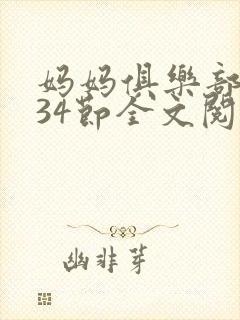 妈妈俱樂部
34節全文閱
幽非芽